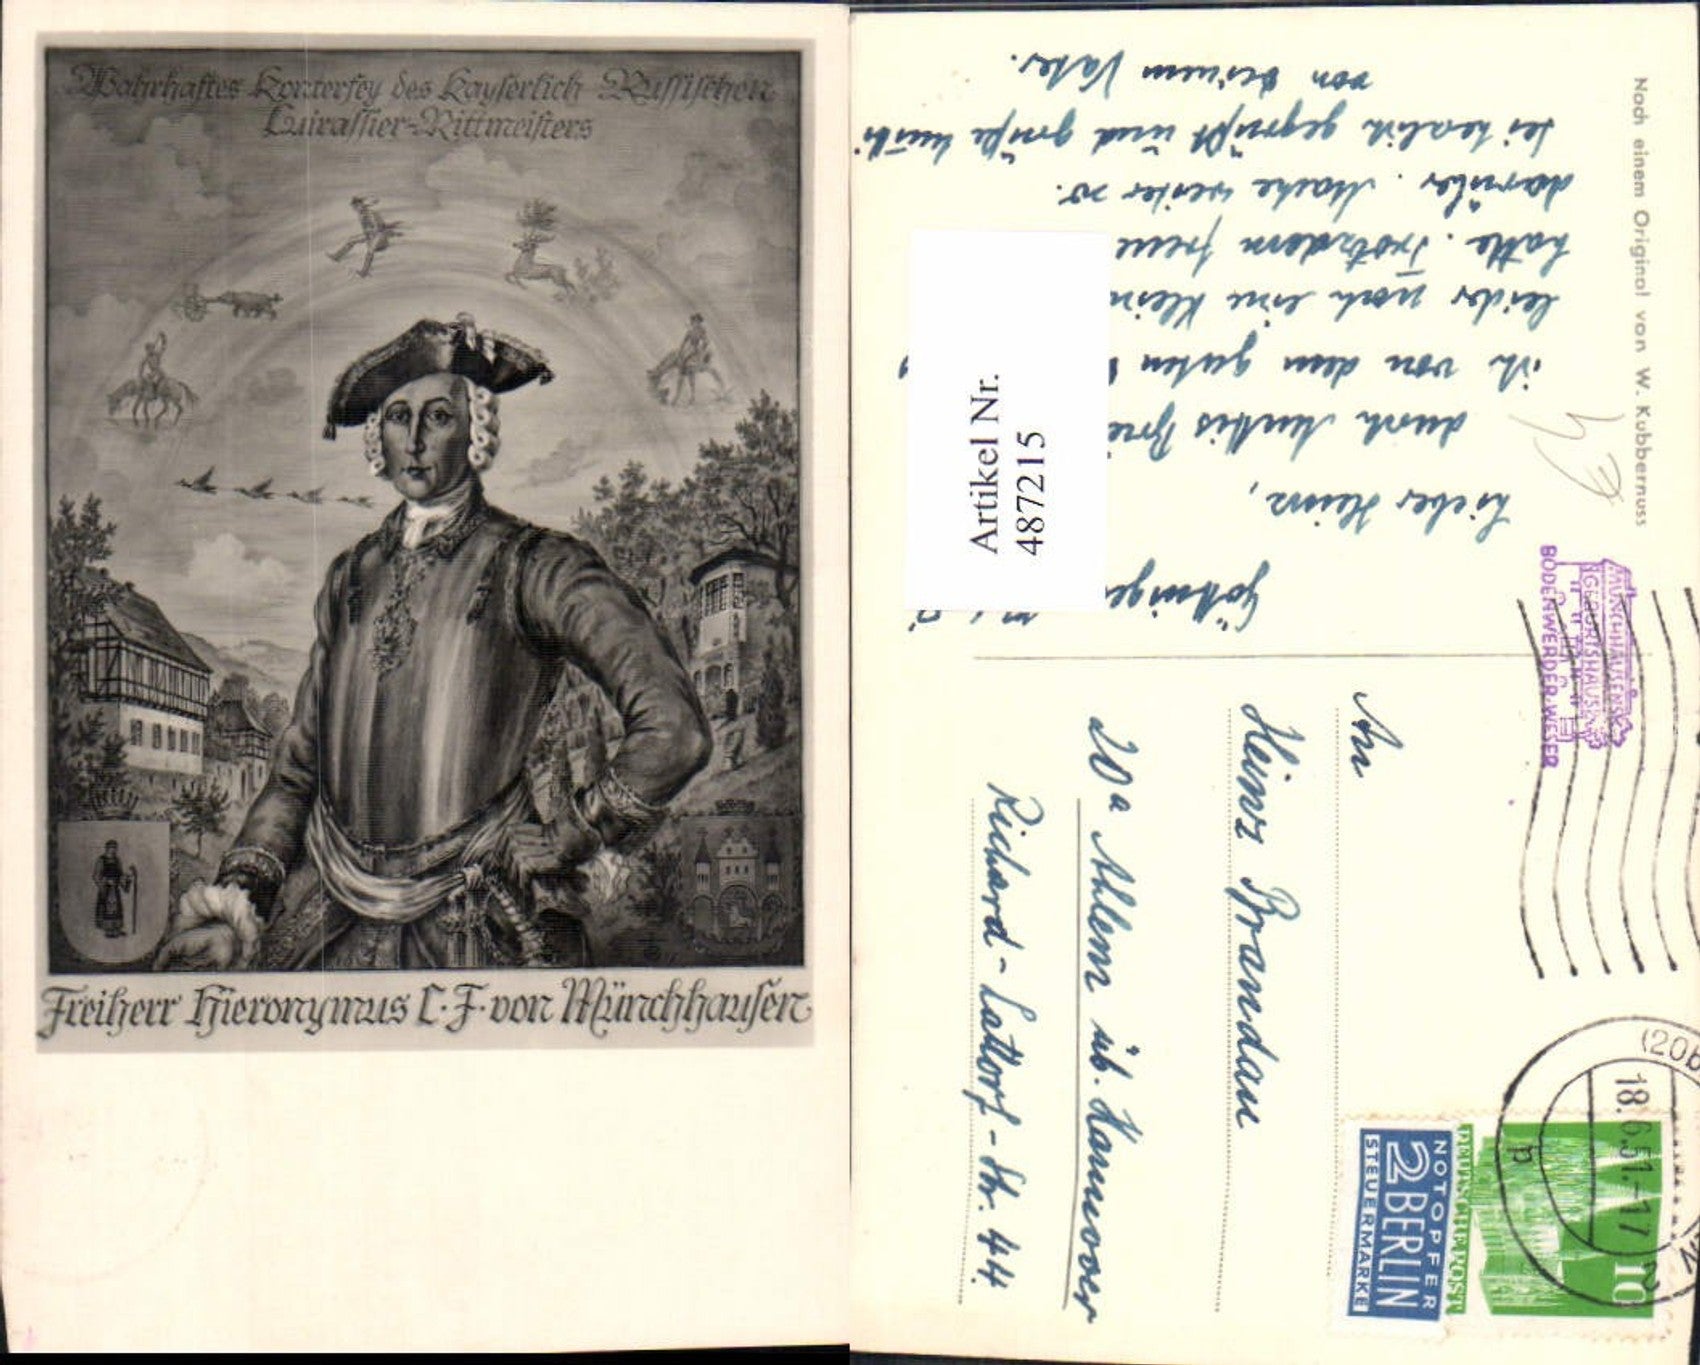 Wahrhaftes Konterfey des Kayserlich Russischen
Cuirassier-Rittmeisters
Freiherr Hieronymus C. F. von Münchhausen
Noch einem Original von W. Kubbernuss
Lieber Heinz,
durch Muttis
ih von dem guten
leider noch eine klein
hatte. Trotzdem freu
darüber. Mache weiter so.
Sei herzlich gegrüßt und grüße Mutti
von deinem Vater.
Artikel Nr.
487215
MÜNCHHAUSENS
GEBURTSHAUS
BODENWERDER-WESER
An
Heinz Brandau
20a Ahlem üb. Hannover
Richard-Lattorf-Str. 44.
(20b
18.6.51.-17
p
2
DEUTSCHE POST
10
NOTOPFER
2 BERLIN
STEUERMARKE